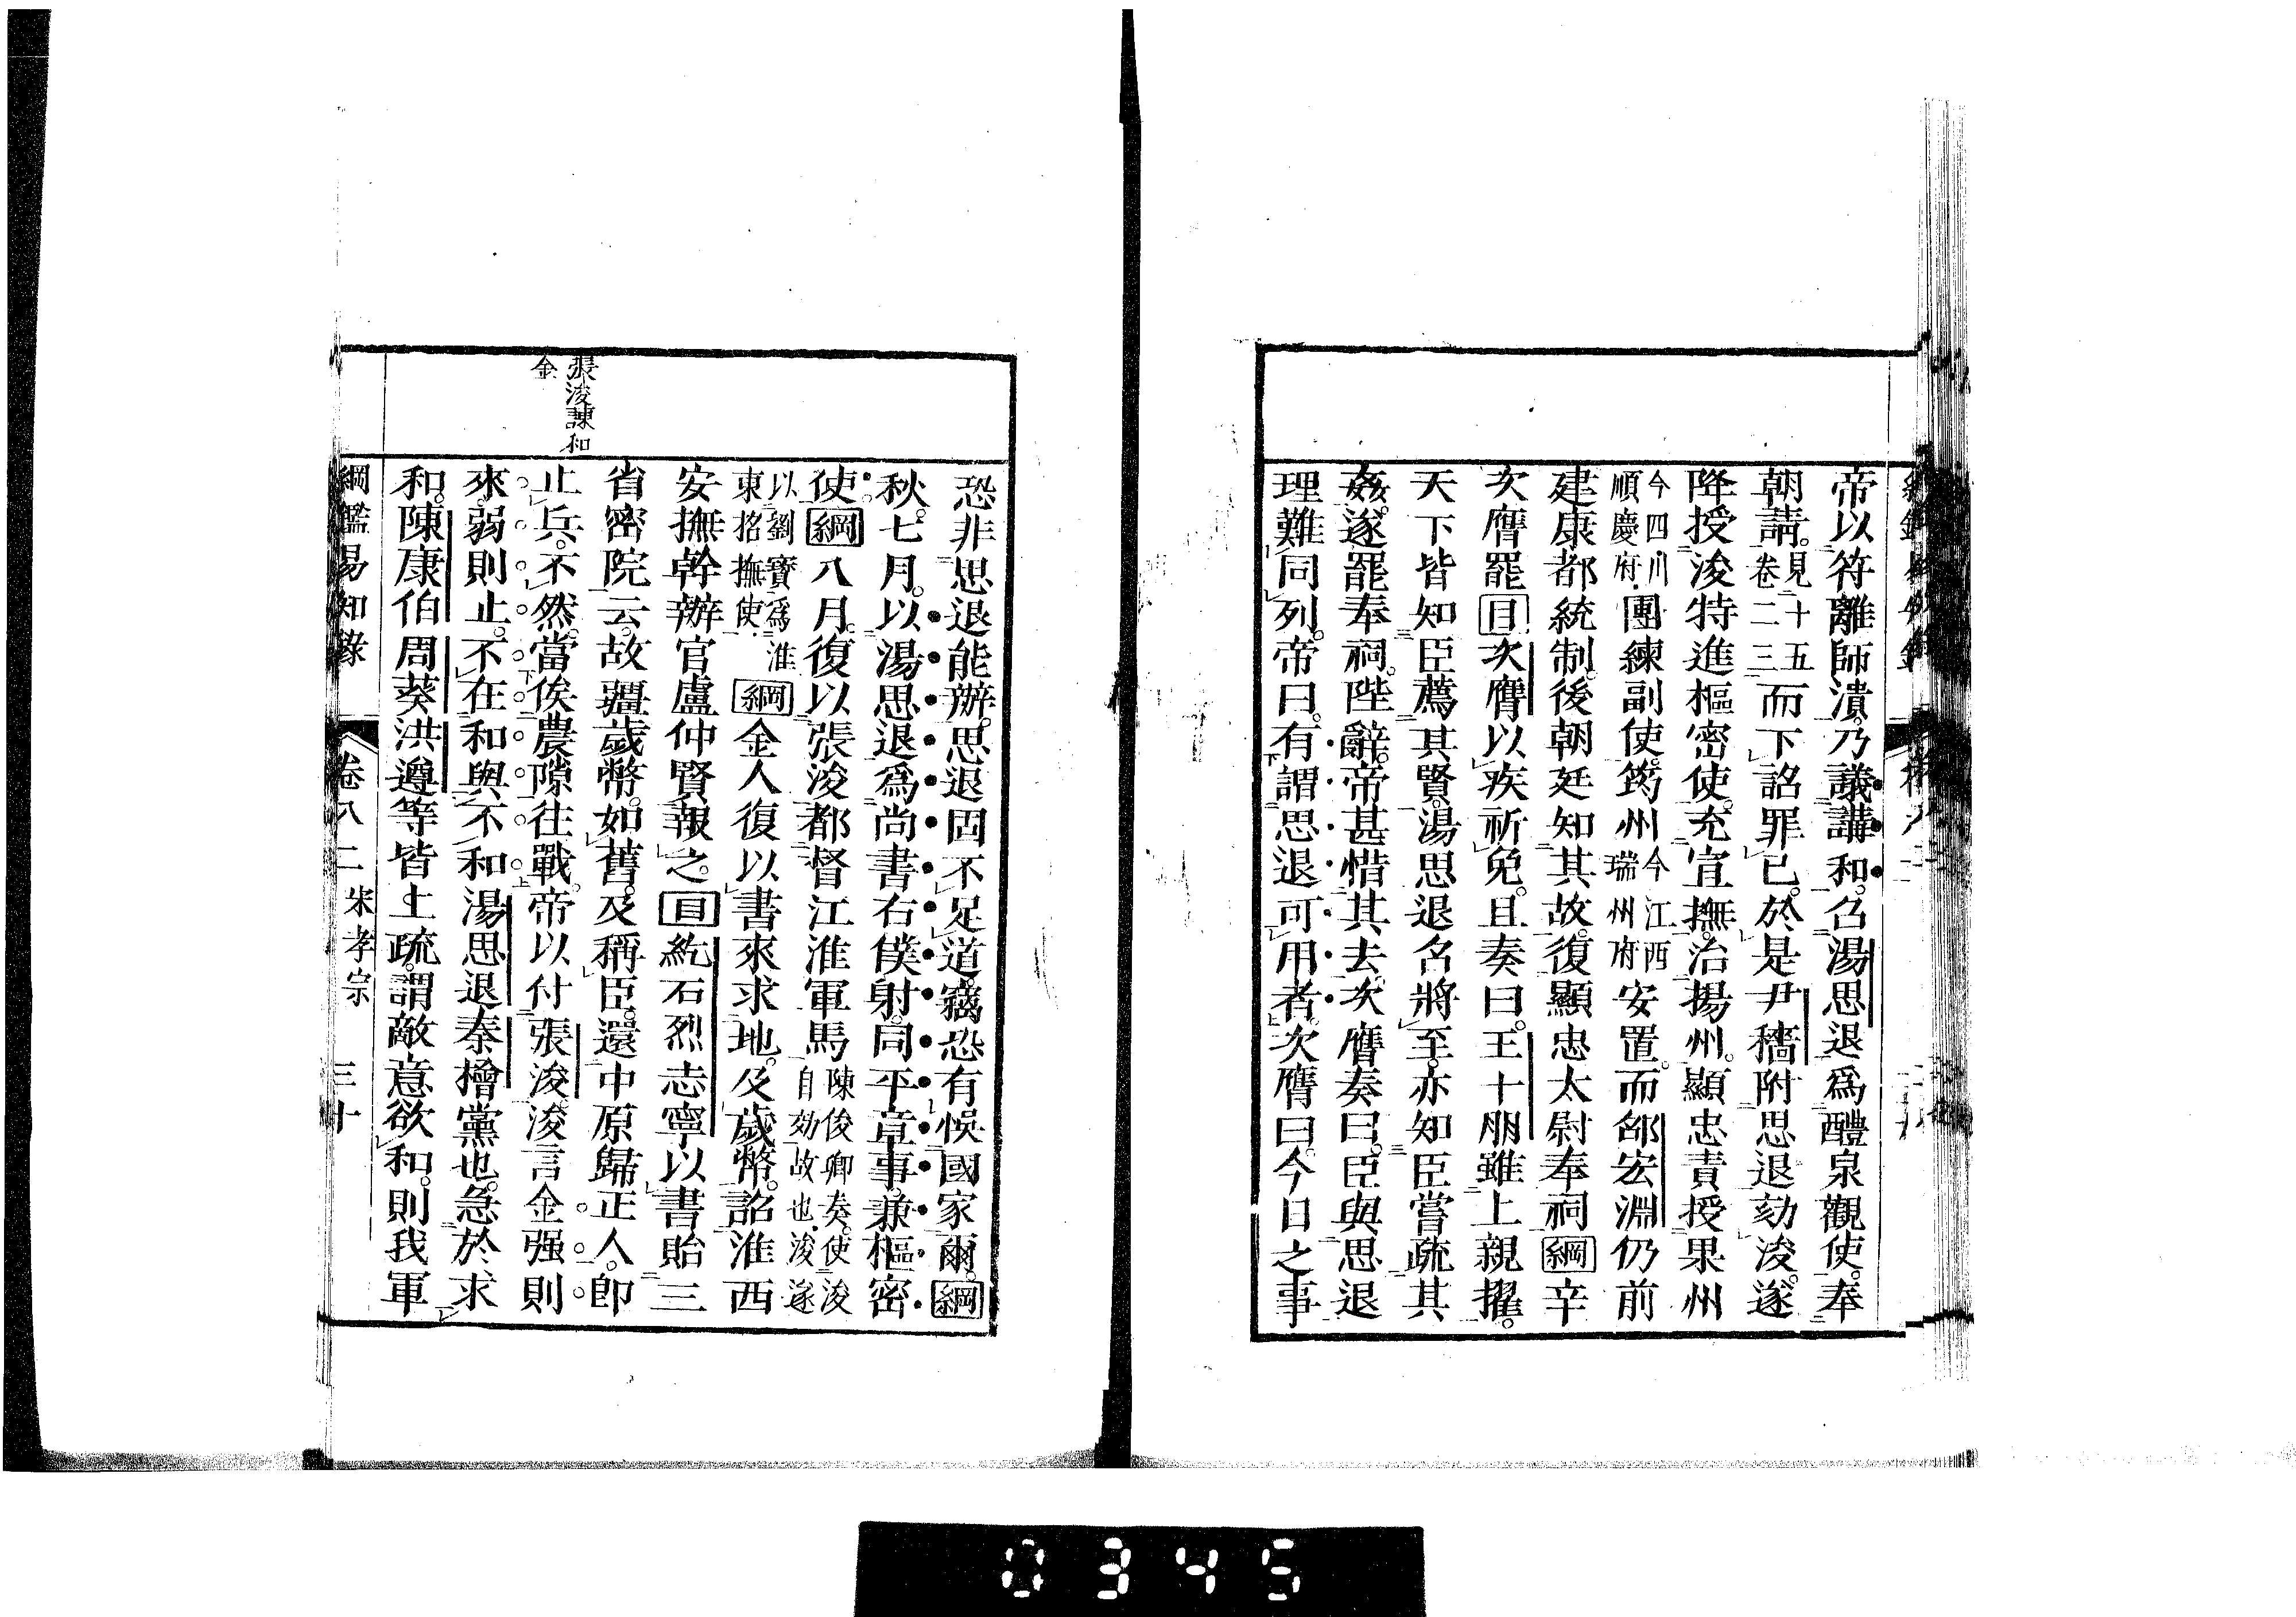 帝以符離師潰。乃議講和。召湯思退爲醴泉觀使。奉
朝請。見十五卷二三而下詔罪已。於是尹穡附思退劾浚。遂
降授浚特進樞密使。充宣撫。治揚州。顯忠責授果州
今四川順慶府。團練副使。筠州今江西瑞州府安置。而邵宏淵仍前
建康都統制。後朝廷知其故。復顯忠太尉奉祠綱辛
次膺罷目次膺以疾祈免。且奏曰。王十朋雖上親擢。
天下皆知臣薦其賢。湯思退召將至。亦知臣嘗疏其
姦。遂罷奉祠。陛辭。帝甚惜其去。次膺奏曰。臣與思退
理難同列。帝曰。有謂思退可用者。次膺曰。今日之事
恐非思退能辦。思退固不足道。竊恐有悞國家爾。綱
秋。七月。以湯思退爲尚書右僕射。同平章事。兼樞密
使。綱八月。復以張浚都督江淮軍馬陳俊卿奏。使浚自効故也。浚遂
以劉寶爲淮東招撫使。綱金人復以書來求地。及歲幣。詔淮西
安撫幹辦官盧仲賢報之。目紇石烈志寧以書貽三
省密院云。故疆歲幣。如舊。及稱臣。還中原歸正人。卽
止兵。不然。當俟農隙往戰。帝以付張浚。浚言金强則
來。弱則止。不在和與不和湯思退秦檜黨也。急於求
和。陳康伯周葵洪遵等皆上疏。謂敵意欲和。則我軍
張浚諫和
金
綱鑑易知錄
卷八二
宋孝宗
三十
0345